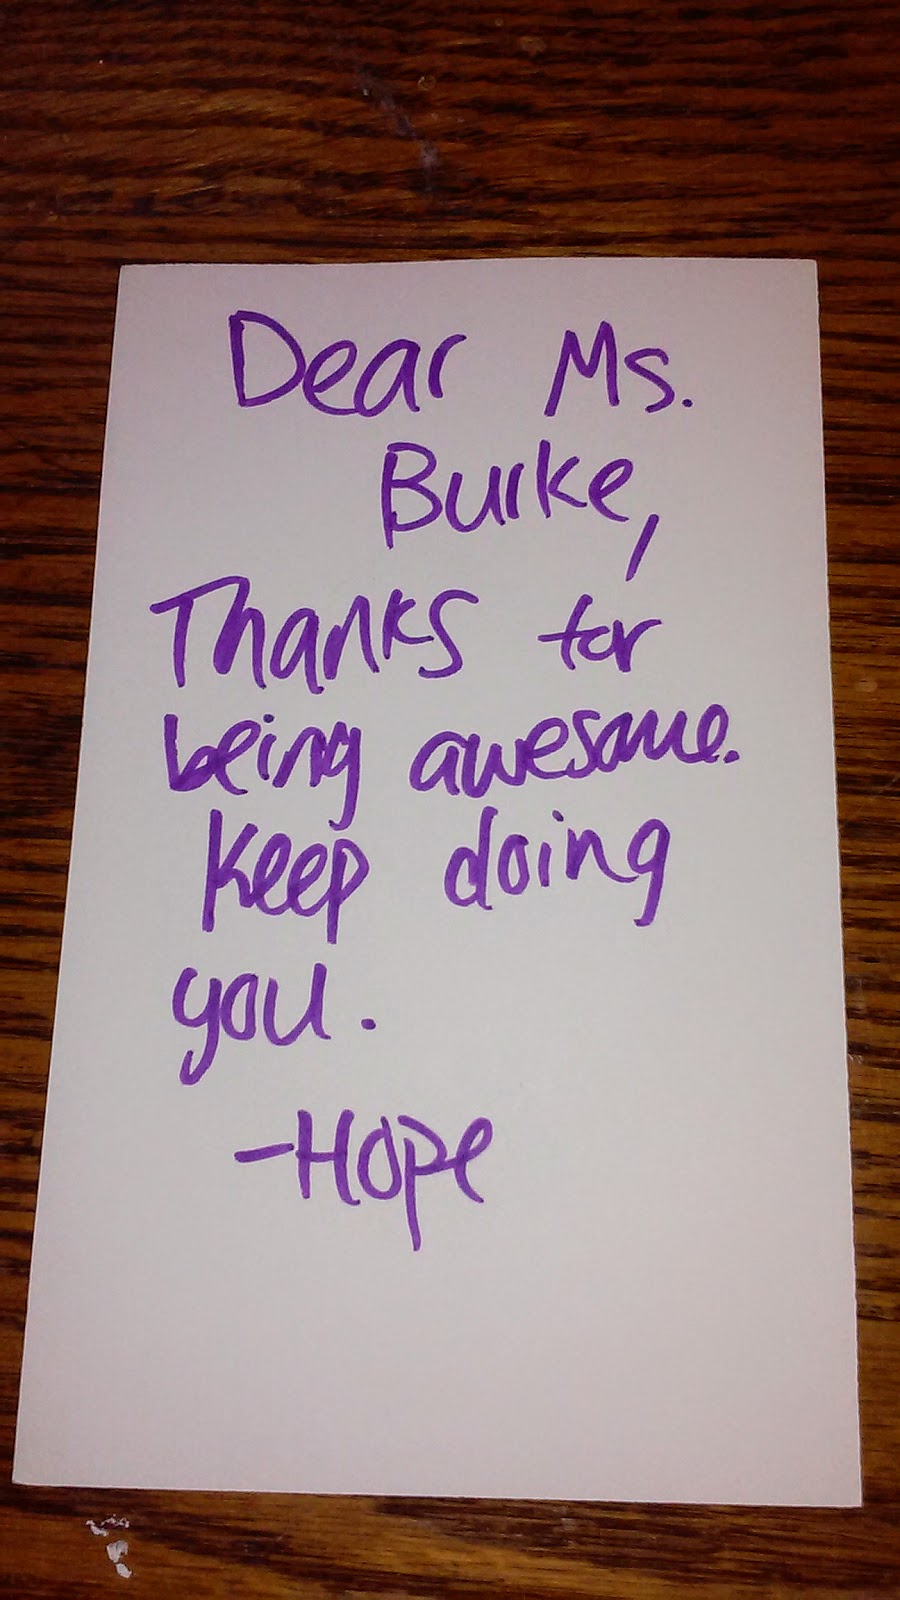 Dear Ms.
Burke,
Thanks for
being awesome.
Keep doing
you.
-Hope